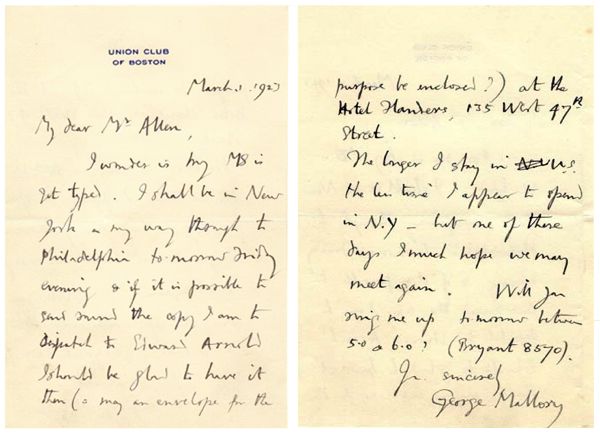 UNION CLUB
OF BOSTON
March. 1. 1923
My dear Mr Allen,
I wonder is my MS is
yet typed. I shall be in New
York on my way through to
Philadelphia to-morrow Friday
evening & if it is possible to
send round the copy I am to
dispatch to Edward Arnold
I should be glad to have it
then (or may an envelope for the
purpose be enclosed?) at the
Hotel Flanders, 135 West 47th
Street.
The longer I stay in N.Y U.S.
the less time I appear to spend
in N.Y – but one of these
days I much hope we may
meet again. Will you
ring me up tomorrow between
5.0 & 6.0? (Bryant 8570).
Yr. sincerely
George Mallory